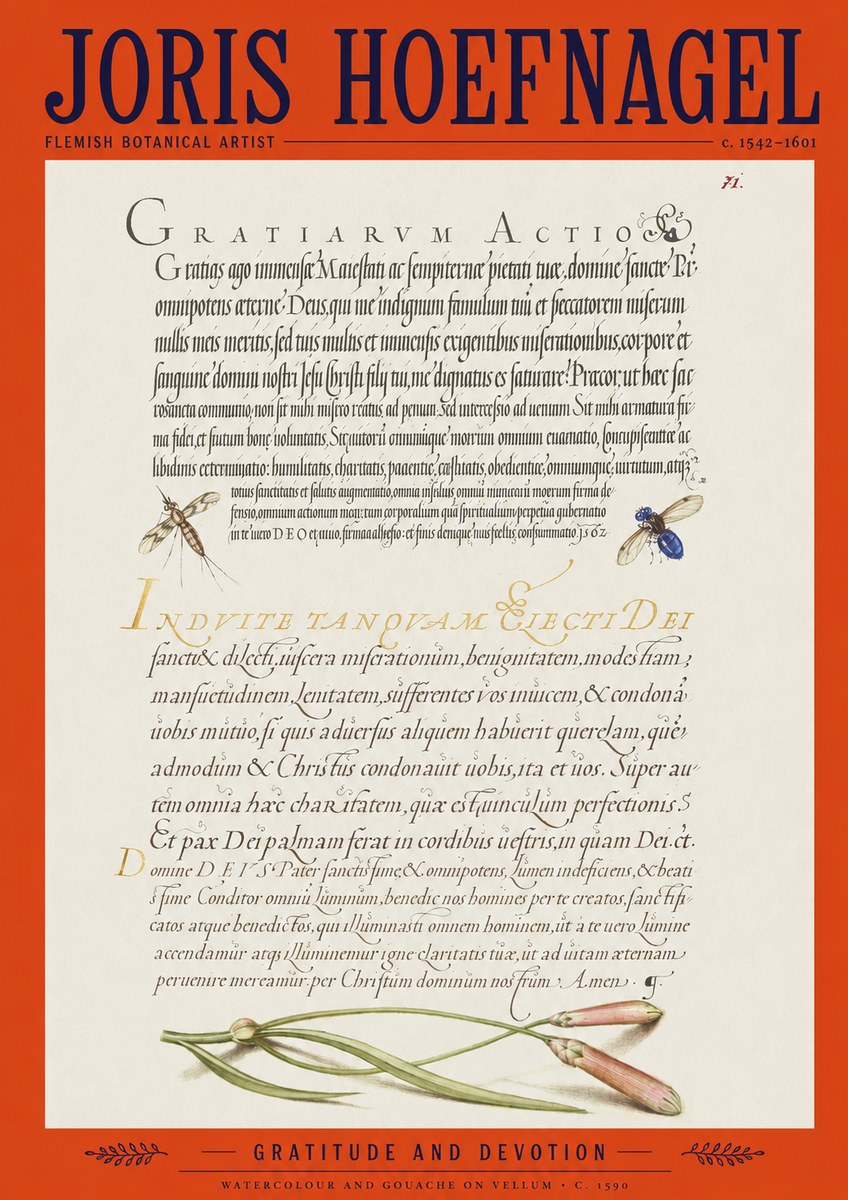 JORIS HOEFNAGEL
FLEMISH BOTANICAL ARTIST
c. 1542–1601
71.
GRATIARVM ACTIO
Gratias ago immensæ Maiestati ac sempiternæ pietati tuæ, domine sancte Pr.
omnipotens æterne Deus, qui me indignum famulum tuũ et peccatorem miserum
nullis meis meritis, sed tuis multis et immensis exigentibus miserationibus, corpore et
sanguine domini nostri Jesu Christi filij tui, me dignatus es saturare. Præcor, ut hæc sac
rosancta communio, non sit mihi reatus ad penam, sed intercessio ad ueniam Sit mihi armatura fir
ma fidei, et scutum bonę uoluntatis, Sit omnium euacuatio, concupiscentiæ ac
libidinis exterminatio: humilitatis, charitatis, pacientię, castitatis, obedientiæ, omniumque uirtutum, atq3
totius sanctitatis et salutis augmentatio, omnia insidiis omniũ firma de
fensio, omnium actionum corporalium quã spiritualium perpetua gubernatio
in te uero DEO et firma et finis denique consummatio. 1562
INDVITE TANQVAM ELECTI DEI
sancti & dilecti, uiscera miserationum, benignitatem, modestiam,
mansuetudinem, Lenitatem, sufferentes vos inuicem, & condonã
uobis mutuo, si quis aduersus aliquem habuerit querelam, què,
admodum & Christus condonauit uobis, ita et uos. Super au-
tem omnia hæc charitatem, quæ est uinculum perfectionis
Et pax Dei palmam ferat in cordibus uestris, in quam Dei. ct.
Domine DEVS Pater sanctissime, & omnipotens, Lumen indeficiens, & beati
ssime Conditor omniũ Luminum, benedic nos homines per te creatos, sanctifi-
catos atque benedictos, qui illuminasti omnem hominem, ut à te uero Lumine
accendamur atq3 illuminemur igne claritatis tuæ, ut ad uitam æternam
peruenire mereamur. per Christum dominum nostrum. Amen.
GRATITUDE AND DEVOTION
WATERCOLOUR AND GOUACHE ON VELLUM • C. 1590